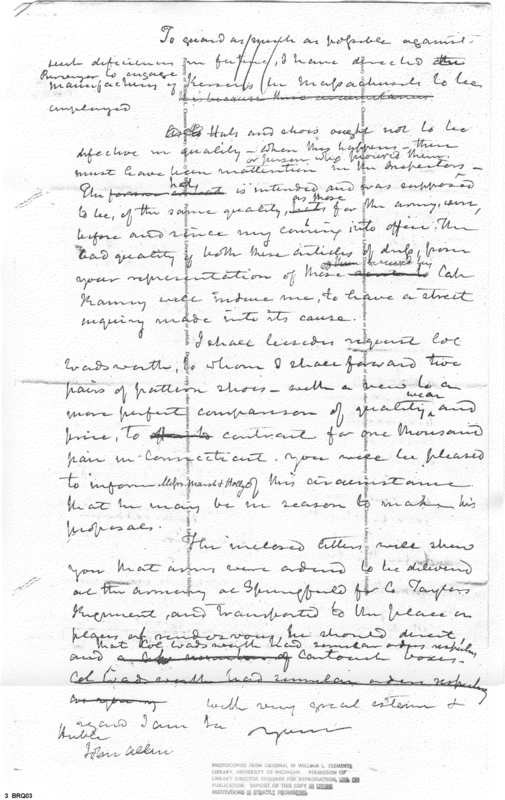 To guard as much as possible against
such deficiencies in future, I have directed the
Purveyor to engage
manufacturers of Kerseys in Massachusetts to be
employed
Hats and shoes ought not to be
defective in quality — when this happens — there
must have been inattention in the Inspectors —
or person who procured them.
The hat is intended and was supposed
to be, of the same quality, as those for the army, were,
before and since my coming into office. The
bad quality of both these articles of dress, from
your representation of those received by Capt
Ramsy will induce me, to have a strict
inquiry made into its cause.
I shall besides request Col
Wadsworth, to whom I shall forward two
pairs of pattern shoes — with a view to a
more perfect comparison of quality, wear and
price, to contract for one thousand
pair in Connecticut. You will be pleased
to inform Messrs Marsh & of this circumstance
that he may be in season to make his
proposals.
The inclosed letters will shew
you that arms were ordered to be delivered
at the armory at Springfield for Co Taylors
Regiment, and transported to the place or
places of rendezvous, he should direct,
that Col Wadsworth had similar orders respecting
and a of cartouch boxes.
Col Wadsworth had similar orders respecting
with very great esteem &
regard I am Sr
yours
Honble
John Allen
PHOTOCOPIED FROM ORIGINAL IN WILLIAM L. CLEMENTS
LIBRARY, UNIVERSITY OF MICHIGAN. PERMISSION OF
LIBRARY DIRECTOR REQUIRED FOR REPRODUCTION, USE OR
PUBLICATION. DEPOSIT OF THIS COPY IN OTHER
INSTITUTIONS IS STRICTLY PROHIBITED.
3 BRQ03